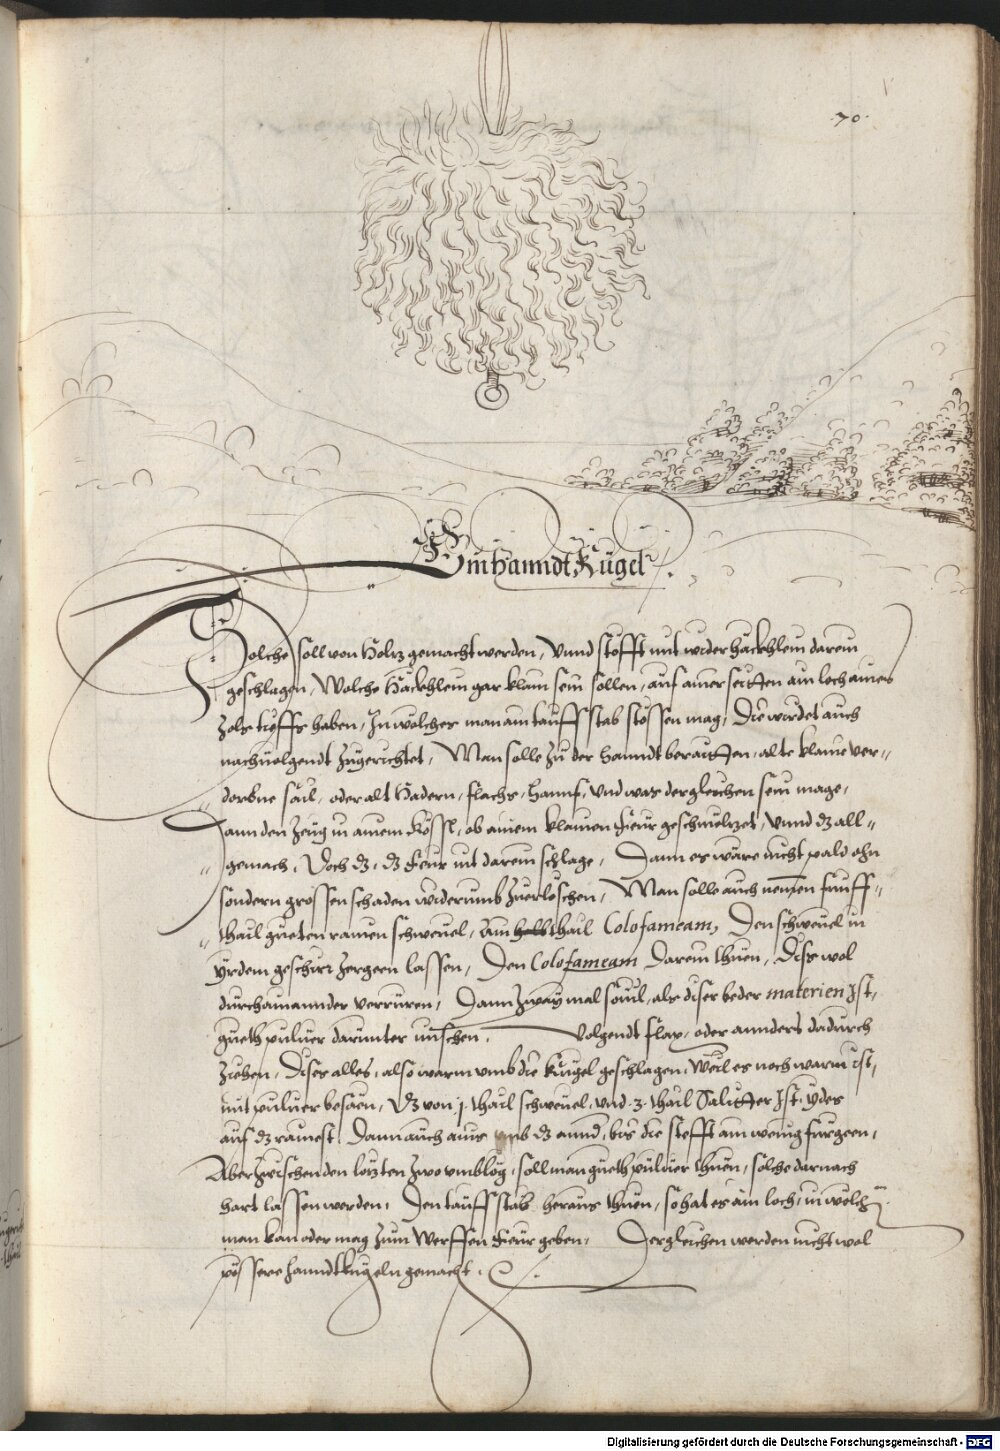 .70.
Ein Hanndt Kugel.
Solche soll von Holtz gemacht werden, Vnnd stöfft mit wider häckhlein darein
geschlagen, Welche Häckhlein gar klain sein sollen, auf ainer seitten ain loch aines
Zols tieffs haben, In welches man ain tauff stab stossen mag, Die wirdet auch
nachuolgendt Zuegerichtet, Man solle Zu der Hanndt beraitten, alte klaine ver-
dorbne sail, oder alt Hadern, flachs, Hannf, vnd was dergleichen sein mage,
Dann den Zeug in ainem Kössl, ob ainem klainen Feur geschmeltzet, Vnnd dz all-
gemach, Doch dz, dz Feur nit darein schlage, Dann es wäre nicht pald ohn
sondern grossen schaden widerumb Zuerleschen, Man solle auch nemen fünff
thail gueten rainen schweuel, Ain halb thail Colofameam, Den schweuel in
yrdem geschirr Zergeen lassen, Den Colofameam Darein thuen, Diss wol
durchainannder verrüren, Dann Zway mal souil, als diser beder materien Ist,
gueth puluer darunter mischen, Volgendt flax, oder annders dadurch
Ziehen, Dises alles, also warm vmb die Kugel geschlagen, Weil es noch warm ist,
mit puluer besäen, Dz von .1. thail schweuel, vnd .3. thail Saliter Ist, ydes
auf dz rainest, Dann auch ains vmb dz annd, bis die stefft ain wenig fürgeen,
Aber Zwischen den letzten Zwo vmbleg, soll man gueth puluer thuen, solche darnach
hart lassen werden, Den tauff stab heraus thuen, so hat es ain loch, in welch
man kan oder mag Zum Werffen Feur geben, Dergleichen werden nicht wol
pössere hanndtkugeln gemacht.
Digitalisierung gefördert durch die Deutsche Forschungsgemeinschaft - DFG